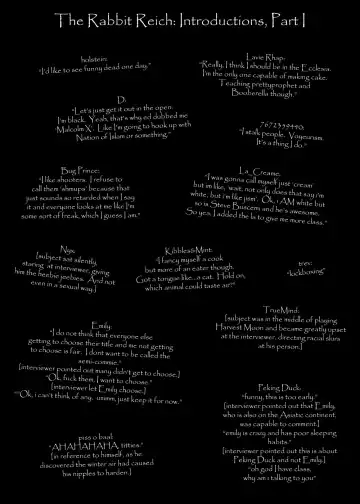 The Rabbit Reich: Introductions, Part I
holstein:
"I'd like to see funny dead one day."
Lavie Rhap:
"Really, I think I should be in the Ecclesia.
I'm the only one capable of making cake.
Teaching prettyprophet and
Booberella though."
Di:
"Let's just get it out in the open:
I'm black. Yeah, that's why ed dubbed me
"Malcolm X". Like I'm going to hook up with
Nation of Islam or something."
"I stalk people. Voyeurism.
It's a thing I do."
Bug Prince:
"I like shooters. I refuse to
call them 'shmups' because that
just sounds so retarded when I say
it and everyone looks at me like I'm
some sort of freak, which I guess I am."
La_Creame:
"I was gonna call myself just 'cream'
but im like, wait, not only does that say i'm
white, but i'm like jism'. Ok, i AM white but
so is Steve Buscemi and he's awesome.
So yes, I added the la to give me more class."
Nyx:
[subject sat silently,
staring at interviewer, giving
him the heebie jeebies. And not
even in a sexual way.]
Kibbles&Mint:
"I fancy myself a cook
but more of an eater though.
Got a tongue like...a cat. Hold on,
which animal could taste air?"
trev:
"lockboxing"
TrueMind:
[subject was in the middle of playing
Harvest Moon and became greatly upset
at the interviewer, directing racial slurs
at his person.]
Emily:
"I do not think that everyone else
getting to choose their title and me not getting
to choose is fair. I dont want to be called the
semi-commie."
[interviewer pointed out many didn't get to choose.]
"Ok, fuck them, I want to choose."
[interviewer let Emily choose.]
"Ok, i can't think of any. umms, just keep it for now."
Peking Duck:
"funny, this is too early"
[interviewer pointed out that Emily,
who is also on the Asiatic continent,
was capable to comment.]
"emily is crazy and has poor sleeping
habits."
[interviewer pointed out this is about
Peking Duck and not Emily.]
"oh god I have class,
why am i talking to you"
piss o baal:
"AHAHAHAHA, titties."
[in reference to himself, as he
discovered the winter air had caused
his nipples to harden.]